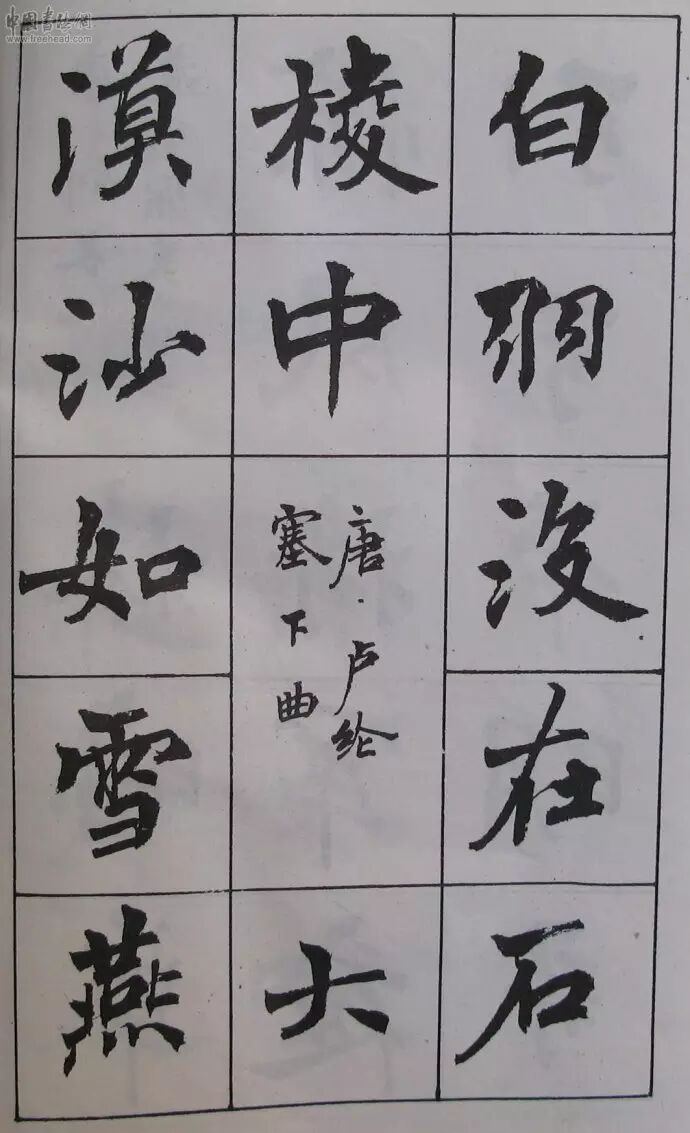 中国书法网
www.freehead.com
白羽没在石
棱中
唐·卢纶
塞下曲
大
漠沙如雪燕